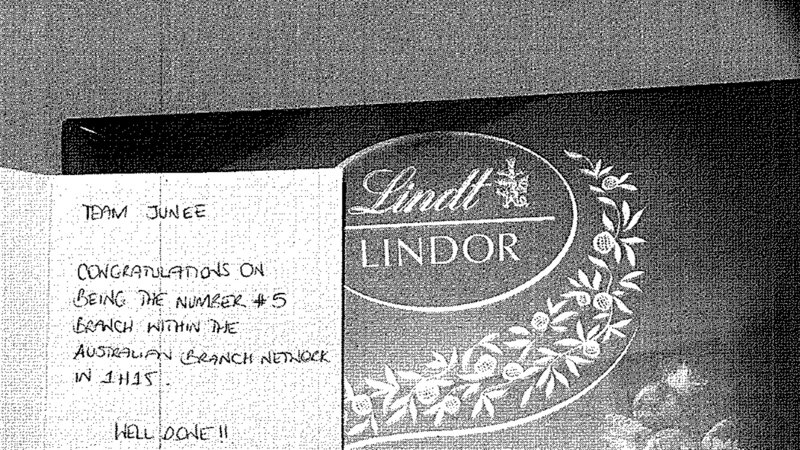 TEAM JUNEE
CONGRATULATIONS ON
BEING THE NUMBER #5
BRANCH WITHIN THE
AUSTRALIAN BRANCH NETWORK
IN 1H15.
WELL DONE!!
Lindt
LINDOR